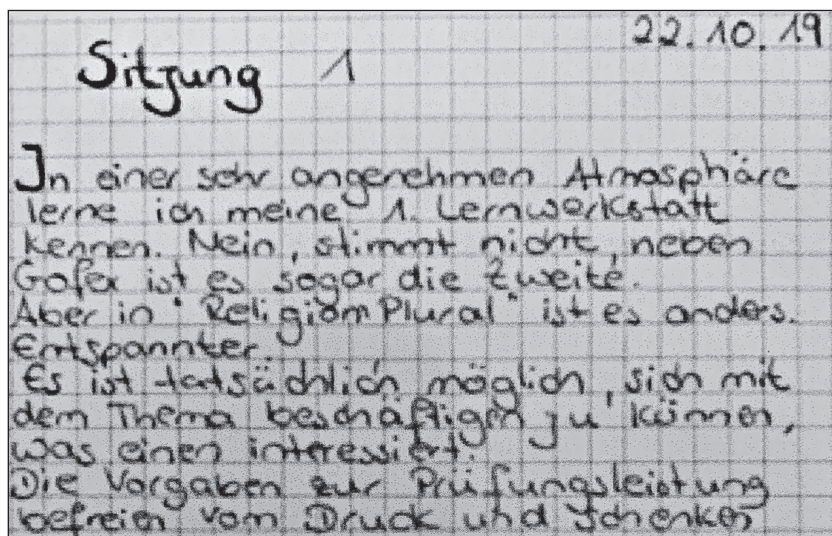 22.10.19
Sitzung 1
In einer sehr angenehmen Atmosphäre
lerne ich meine 1. Lernwerkstatt
kennen. Nein, stimmt nicht, neben
Gofex ist es sogar die zweite.
Aber in "Religion Plural" ist es anders.
Entspannter.
Es ist tatsächlich möglich, sich mit
dem Thema beschäftigen zu können,
was einen interessiert.
Die Vorgaben zur Prüfungsleistung
befreien vom Druck und schenken